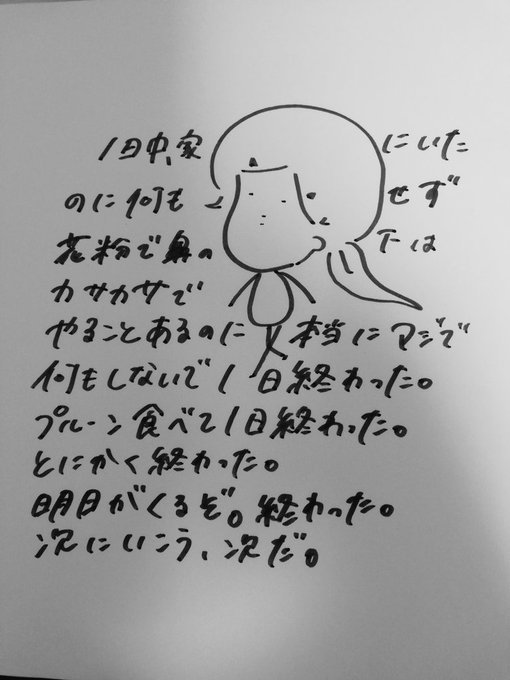 1日中、家にいた
のに何もせず
花粉で鼻の下は
カサカサで
やることあるのに本当にマジで
何もしないで1日終わった。
プルーン食べて1日終わった。
とにかく終わった。
明日がくるぞ。終わった。
次にいこう、次だ。